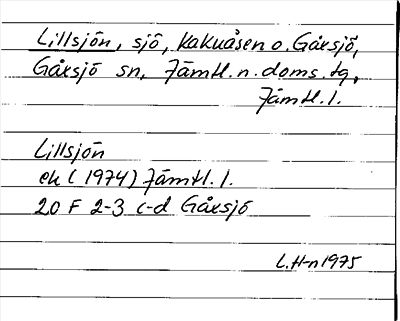 Lillsjön, sjö, Kakuåsen o. Gåxsjö,
Gåxsjö sn, Jämtl. n. doms. tg,
Jämtl. l.
Lillsjön
ek (1974) Jämtl. l.
20 F 2-3 c-d Gåxsjö
L.H-n 1975